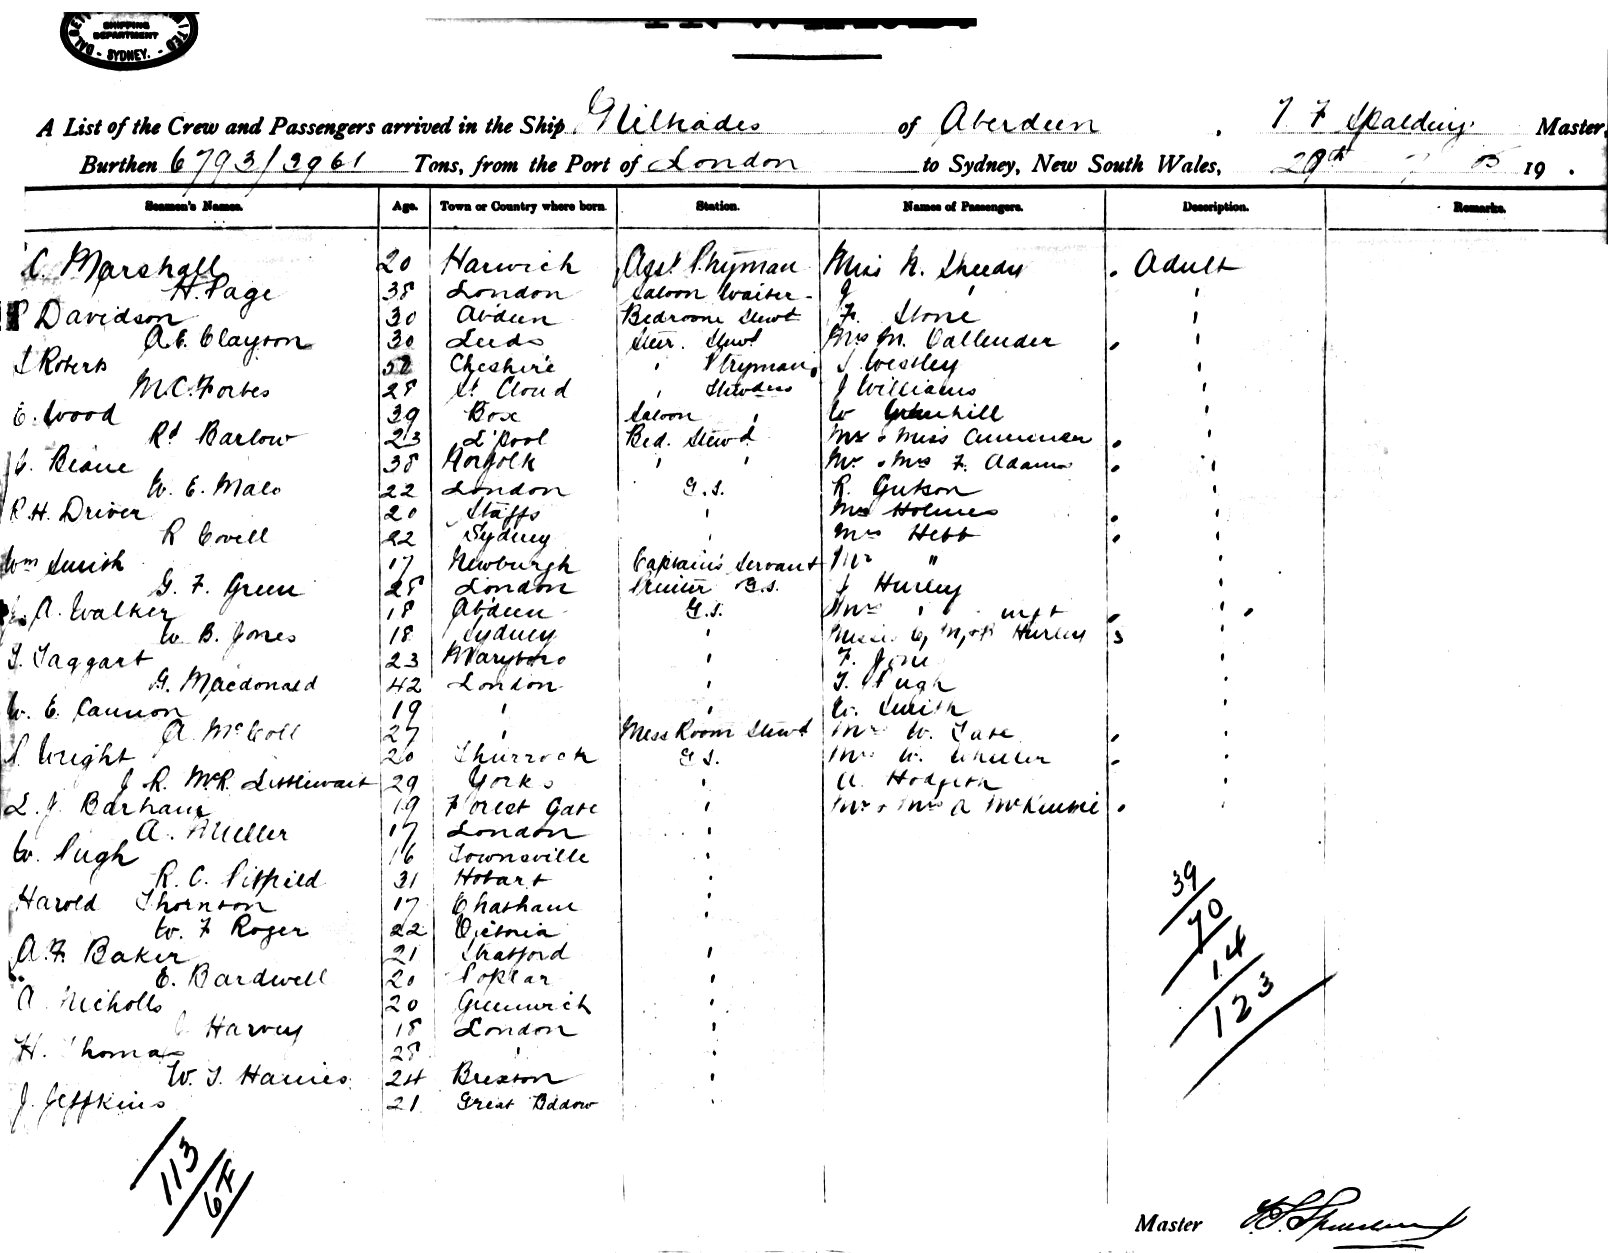 SHIPPING
DEPARTMENT
SYDNEY.
A List of the Crew and Passengers arrived in the Ship Miltiades of Aberdeen, T F Spalding Master,
Burthen 6793/3961 Tons, from the Port of London to Sydney, New South Wales, 29th 05 19 .
Seamen's Names. Age. Town or Country where born. Station. Names of Passengers. Description. Remarks.
C. Marshall 20 Harwich Asst Ptryman Miss N. Sheedy . Adult
H. Page 38 London Saloon Waiter J " '
P Davidson 30 Abdeen Bedroom Stewt F. Stone '
A.E. Clayson 30 Leeds Steer. Stewt Mrs M. Callender . '
Roberts 52 Cheshire ' Ptryman. Westley '
M.C. Forbes 28 St Cloud ' Stewdess J Williams '
E. Wood 39 Box Saloon ' W Greenhill '
Rd Barlow 23 L'pool Bed. Stewd Mrs & Miss . '
C. Beane 38 Norfolk ' ' Mr & Mrs F. Adams . '
W. E. Male 22 London G.S. R. '
R.H. Driver 20 Staffs ' Mrs Holmes . '
R Covell 22 Sydney ' Mrs Hebb . '
Wm Smith 17 Newburgh Captain's Servant Mr " '
G. F. Green 28 London G.S. J Hurley '
A. Walker 18 Abdeen G.S. Mrs ' inft . ' .
W B. Jones 18 Sydney ' Hurley 3 '
J. Taggart 23 Maryboro ' F. '
G. Macdonald 42 London ' T. Pugh '
W. E. Cannon 19 ' ' W. Smith '
A. McColl 27 ' Mess Room Stewt Mrs W. Tate . '
Wright 20 Thurrock G.S. Mrs W. Wheeler . '
J. R. McR. 29 Yorks ' A. Hodgson '
L. J. Barham 19 Forest Gate ' Mr & Mrs A McKenzie . '
A. Mueller 17 London '
W. Pugh 16 Townsville '
R. C. Pitfield 31 Hobart '
Harold Thornton 17 Chatham '
W. F Roger 22 Victoria
A.F. Baker 21 Stratford '
E. Bardwell 20 Poplar '
A. Nicholls 20 Greenwich '
Harvey 18 London '
H. Thomas 28 ' '
W. T. Harries 24 Brixton '
J. Jeffkins 21 Great Bddow '
39
70
14
123
113
67
Master